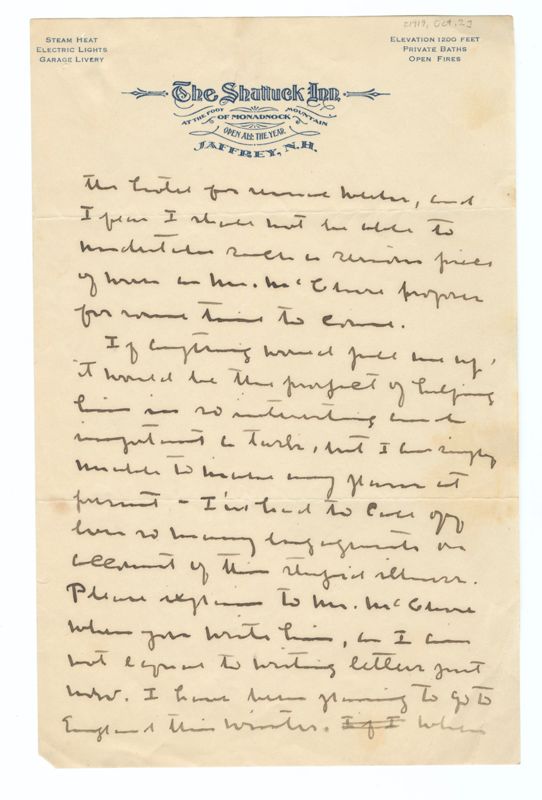 [1919, Oct. 23
STEAM HEAT
ELECTRIC LIGHTS
GARAGE LIVERY
ELEVATION 1200 FEET
PRIVATE BATHS
OPEN FIRES
The Shattuck Inn
AT THE FOOT OF MONADNOCK MOUNTAIN
OPEN ALL THE YEAR
JAFFREY, N.H.
the hotel for several weeks, and
I fear I shall not be able to
undertake such a serious piece
of work as Mr. McClure proposes
for some time to come.
If anything would pull me up,
it would be the prospect of helping
him in so interesting and
important a task, but I am simply
unable to make any plans at
present - I've had to call off
so many engagements on
account of this stupid illness.
Please explain to Mr. McClure
when you write him, as I am
not equal to writing letters just
now. I have been planning to go to
England this winter. If I When